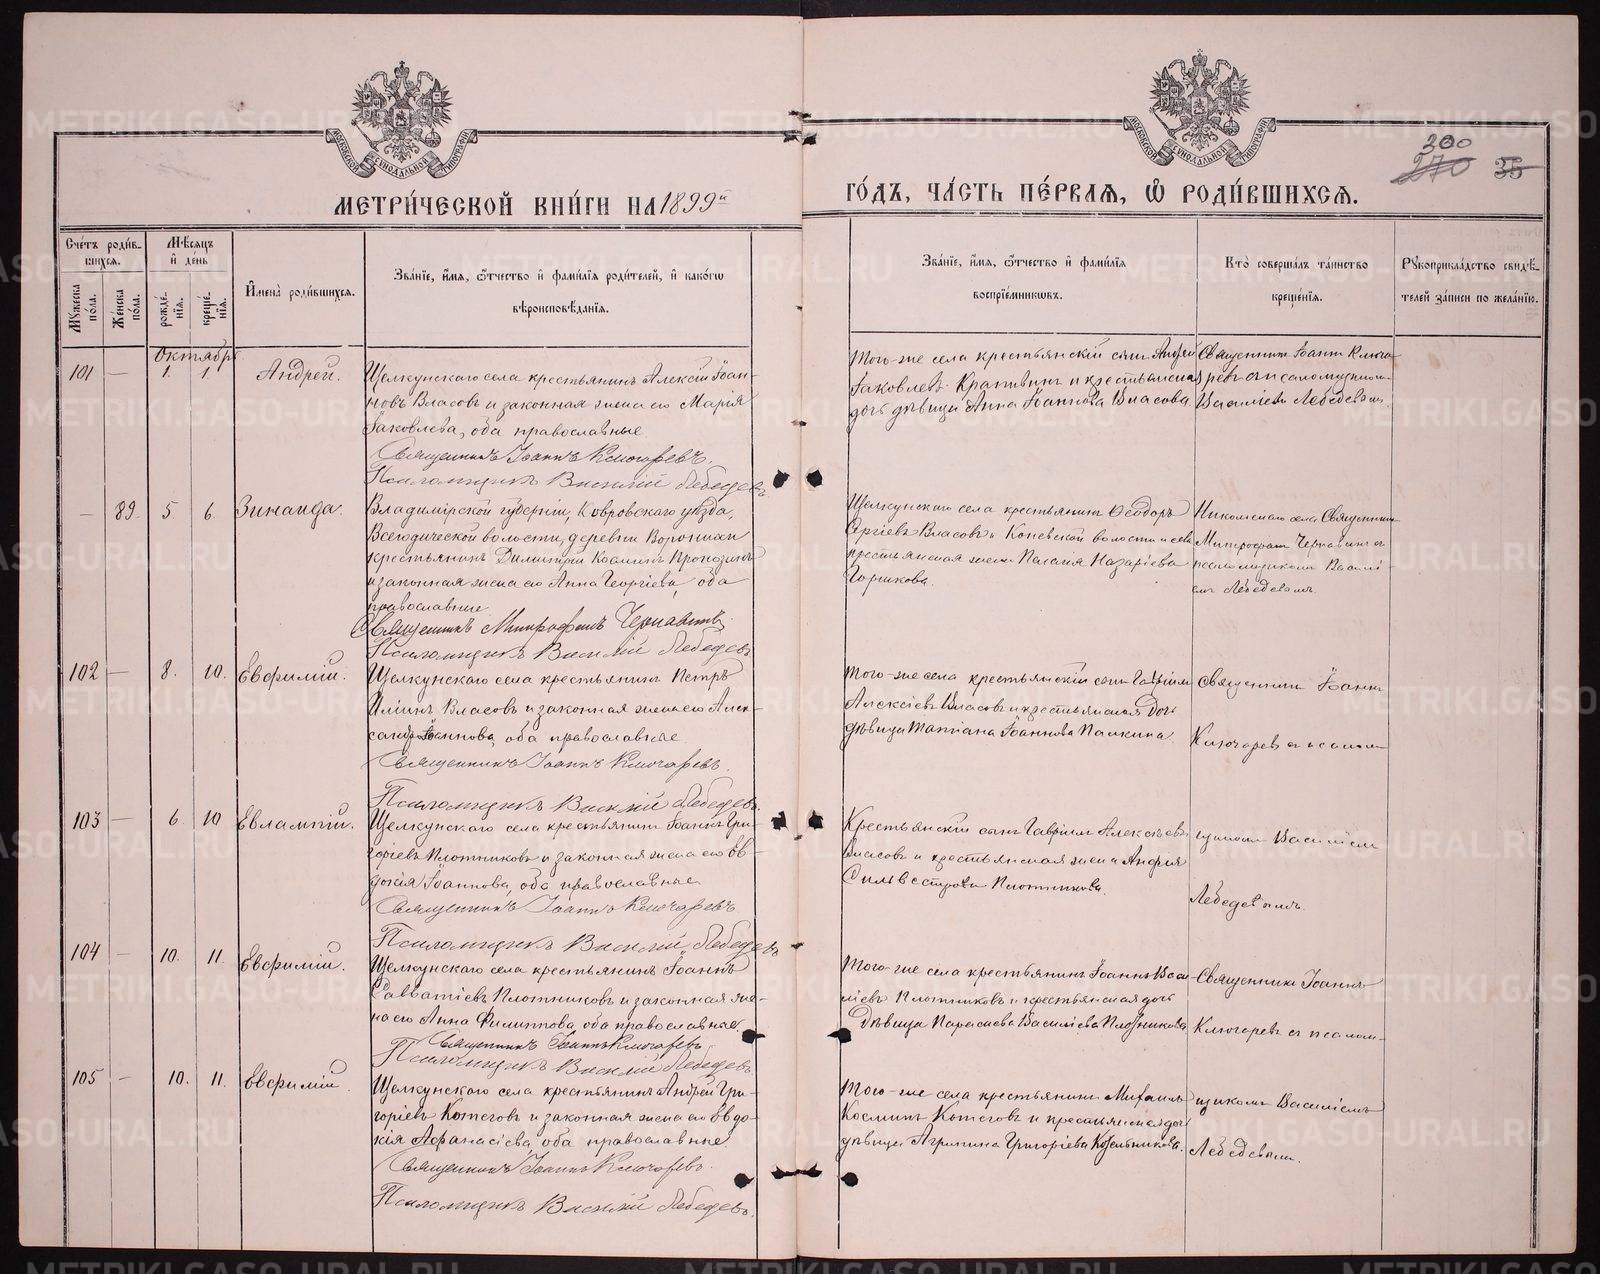 МЕТРИ́ЧЕСКОЙ КНИ́ГИ НА 1899й
ГО́ДЪ, ЧА́СТЬ ПЕ́РВАЯ, Ѡ҆ РОДИ́ВШИХСЯ.
300
270 35
Сче́тъ роди́в-
шихся.
Мѣ́сяцъ
и҆ де́нь
Му́жеска
по́ла.
Же́нска
по́ла.
рожде́-
нїя.
креще́-
нїя.
И҆мена̀ роди́вшихся.
Зва́нїе, и҆́мя, ѻ҆́тчество и҆ фами́лїя роди́телей, и҆ како́гѡ
вѣроисповѣ́данїя.
Зва́нїе, и҆́мя, ѻ҆́тчество и҆ фами́лїя
воспрїе́мникѡвъ.
Кто̀ соверша́лъ та́инство
креще́нїя.
Рꙋкоприкла́дство свидѣ́-
телей за́писи по жела́нїю.
Октябрь
101 — 1. 1. Андрей.
Щелкунскаго села крестьянинъ Алексій Іоан-
новъ Власовъ и законная жена его Марія
Іаковлева, оба православные
Священникъ Іоаннъ Ключаревъ.
Псаломщикъ Василій Лебедевъ
Того-же села крестьянскій сынъ Андрей
Іаковлевъ Крапивинъ и крестьянская
дочь дѣвица Анна Іоаннова Власова
Священникъ Іоаннъ Ключа-
ревъ съ псаломщикомъ
Василіемъ Лебедевымъ.
— 89. 5. 6. Зинаида.
Владимірской губерніи, Ковровскаго уѣзда,
Всегодической волости, деревни Воронихи
крестьянинъ Димитрій Косминъ
и законная жена его Анна Георгіева, оба
православные
Священникъ Митрофанъ Чернавинъ
Псаломщикъ Василій Лебедевъ
Щелкунскаго села крестьянинъ Ѳеодоръ
Сергіевъ Власовъ и Коневской волости и села
крестьянская жена Пелагія Назаріева
Горшкова.
Никольскаго села Священникъ
Митрофанъ Чернавинъ съ
псаломщикомъ Василі-
емъ Лебедевымъ.
102 — 8. 10. Евфимій.
Щелкунскаго села крестьянинъ Петръ
Иліинъ Власовъ и законная жена его Алек-
сандра Іоаннова, оба православные
Священникъ Іоаннъ Ключаревъ.
Псаломщикъ Василій Лебедевъ.
Того-же села крестьянскій сынъ Гавріилъ
Алексіевъ Власовъ и крестьянская дочь
дѣвица Татіана Іоаннова Палкина.
Священникъ Іоаннъ
Ключаревъ съ псалом-
103 — 6. 10. Евлампій.
Щелкунскаго села крестьянинъ Іоаннъ Гри-
горіевъ Плотниковъ и законная жена его Ев-
докія Іоаннова, оба православные
Священникъ Іоаннъ Ключаревъ
Псаломщикъ Василій Лебедевъ
Крестьянскій сынъ Гавріилъ Алексѣевъ
Власовъ и крестьянская жена
Сильвестрова Плотникова.
щикомъ Василіемъ
Лебедевымъ.
104 — 10. 11. Евфимій.
Щелкунскаго села крестьянинъ Іоаннъ
Савватіевъ Плотниковъ и законная же-
на его Анна Филиппова, оба православные
Священникъ Іоаннъ Ключаревъ
Псаломщикъ Василій Лебедевъ
Того-же села крестьянинъ Іоаннъ Васи-
ліевъ Плотниковъ и крестьянская дочь
Дѣвица Параскева Василіева Плотникова
Священникъ Іоаннъ
Ключаревъ съ псалом-
105 — 10. 11. Евфимій
Щелкунскаго села крестьянинъ Андрей Гри-
горіевъ Котеговъ и законная жена его Евдо-
кія Аѳанасіева, оба православные
Священникъ Іоаннъ Ключаревъ.
Псаломщикъ Василій Лебедевъ.
Того-же села крестьянинъ Михаилъ
Косминъ Котеговъ и крестьянская дочь
дѣвица Агрипина Григоріева Котельникова.
щикомъ Василіемъ
Лебедевымъ.
METRIKI.GASO-URAL.RU